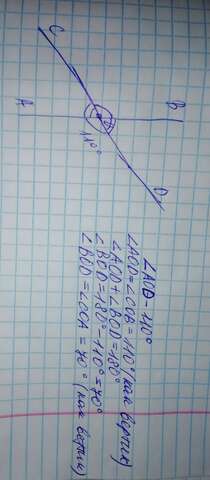 C
A
B
O
110°
D
∠AOD - 110°
∠AOD = ∠COB = 110° (как вертик)
∠AOD + ∠BOD = 180°
∠BOD = 180° - 110° = 70°
∠BOD = ∠COA = 70° (как вертик)